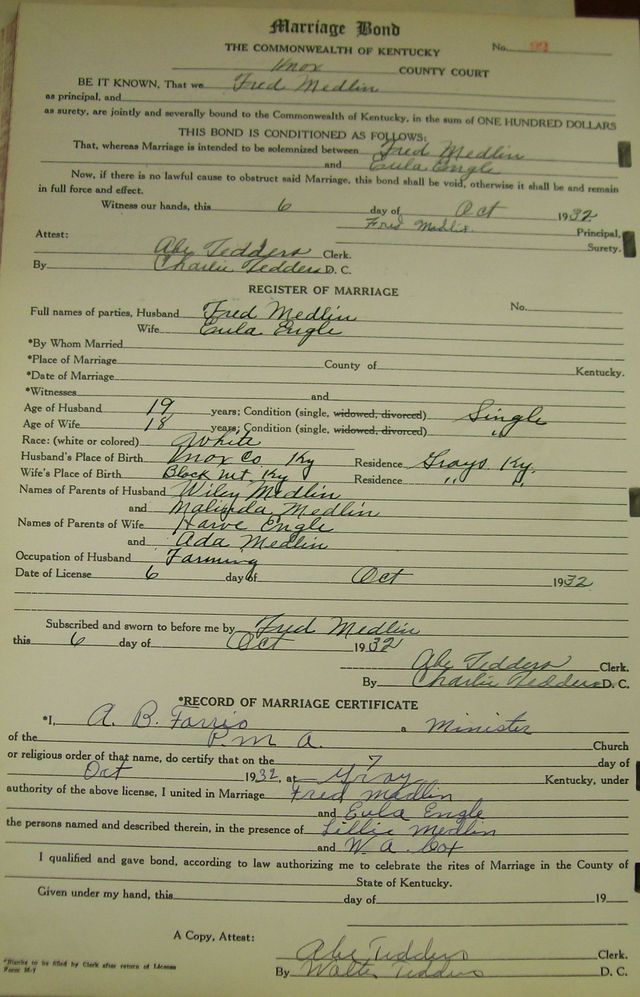 Marriage Bond
THE COMMONWEALTH OF KENTUCKY
No. 99
Knox COUNTY COURT
BE IT KNOWN, That we Fred Medlin
as principal, and
as surety, are jointly and severally bound to the Commonwealth of Kentucky, in the sum of ONE HUNDRED DOLLARS
THIS BOND IS CONDITIONED AS FOLLOWS:
That, whereas Marriage is intended to be solemnized between Fred Medlin
and Eula Engle
Now, if there is no lawful cause to obstruct said Marriage, this bond shall be void, otherwise it shall be and remain
in full force and effect.
Witness our hands, this 6 day of Oct 1932
Fred Medlin Principal,
Surety.
Attest:
Abe Tedders Clerk.
By Charlie Tedders D. C.
REGISTER OF MARRIAGE
Full names of parties, Husband Fred Medlin No.
Wife Eula Engle
*By Whom Married
*Place of Marriage County of Kentucky.
*Date of Marriage
*Witnesses and
Age of Husband 19 years; Condition (single, widowed, divorced) Single
Age of Wife 18 years; Condition (single, widowed, divorced) "
Race: (white or colored) White
Husband's Place of Birth Knox Co Ky Residence Grays Ky.
Wife's Place of Birth Black Mt. Ky Residence " "
Names of Parents of Husband Wiley Medlin
and Malinda Medlin
Names of Parents of Wife Harve Engle
and Ada Medlin
Occupation of Husband Farming
Date of License 6 day of Oct 1932
Subscribed and sworn to before me by Fred Medlin
this 6 day of Oct 1932
Abe Tedders Clerk.
By Charlie Tedders D. C.
*RECORD OF MARRIAGE CERTIFICATE
*I, A. B. Farris a Minister
of the P. M. A. Church
or religious order of that name, do certify that on the 7 day of
Oct 1932, at Gray Kentucky, under
authority of the above license, I united in Marriage Fred Medlin
and Eula Engle
the persons named and described therein, in the presence of Lillie Medlin
and W. A. Cox
I qualified and gave bond, according to law authorizing me to celebrate the rites of Marriage in the County of
State of Kentucky.
Given under my hand, this day of 19
A Copy, Attest:
Abe Tedders Clerk.
By Walter Tedders D. C.
*Blanks to be filled by Clerk after return of License
Form M-7